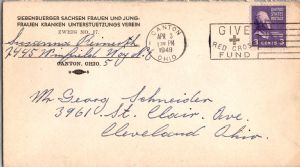 SIEBENBUERGER SACHSEN FRAUEN UND JUNG-
FRAUEN KRANKEN UNTERSTUETZUNGS VEREIN
ZWEIG NO. 17.
Susanna
CANTON, OHIO.
CANTON
APR 3
PM
1949
OHIO
GIVE
RED CROSS
FUND
3 CENTS 3
Mr Georg Schneider
3961 St. Clair Ave.
Cleveland Ohio.